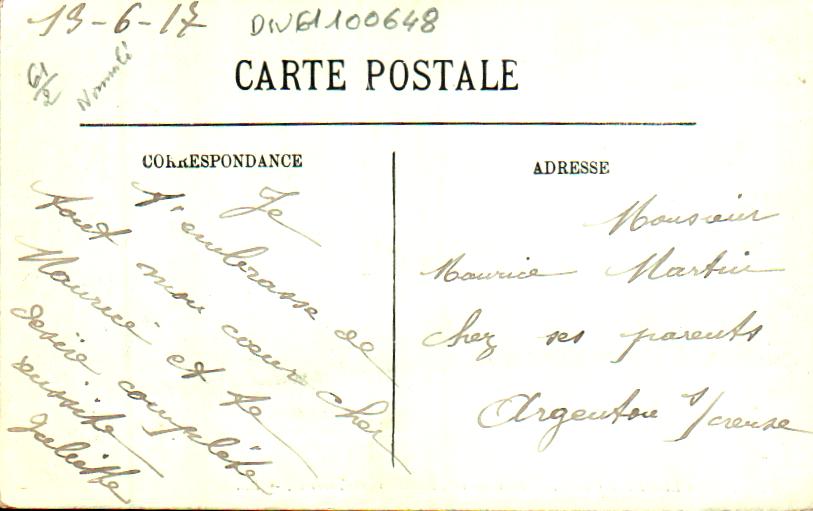 13-6-17 DIV61100648
61/2
CARTE POSTALE
CORRESPONDANCE
Je
t'embrasse de
tout mon coeur cher
Maurice et te
desire complète
reussite
Juliette
ADRESSE
Monsieur
Maurice Martin
chez ses parents
Argenton s/creuse